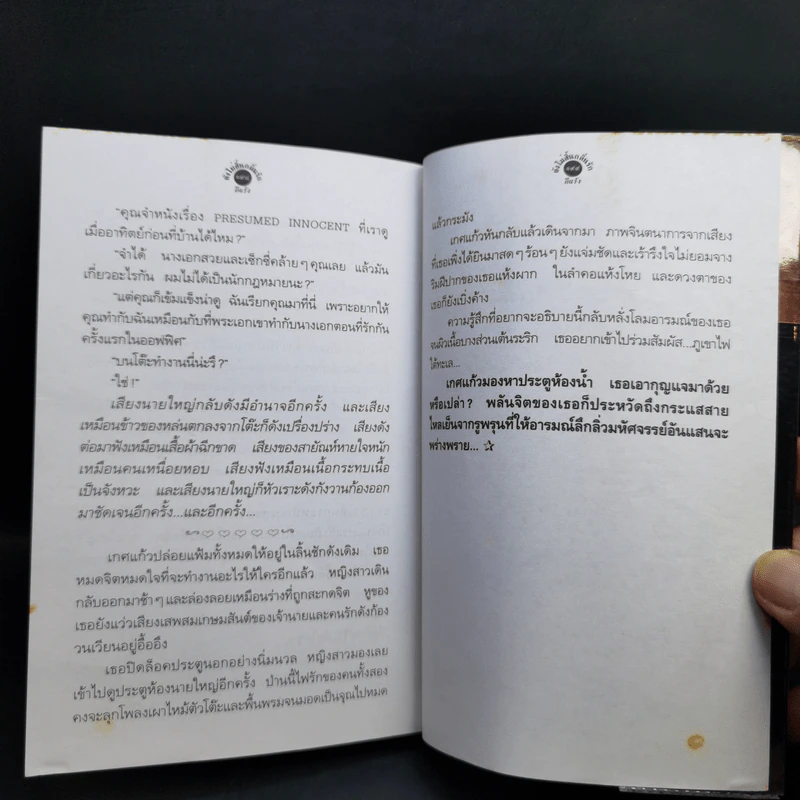 ยังไม่สิ้นกลิ่นรัก
มีแรัง
"คุณจำหนังเรื่อง PRESUMED INNOCENT ที่เราดู
เมื่ออาทิตย์ก่อนที่บ้านได้ไหม?"
"จำได้ นางเอกสวยและเซ็กซี่คล้ายๆคุณเลย แล้วมัน
เกี่ยวอะไรกัน ผมไม่ได้เป็นนักกฎหมายนะ?"
"แต่คุณก็เข้มแข็งน่าดู ฉันเรียกคุณมาที่นี่ เพราะอยากให้
คุณทำกับฉันเหมือนกับที่พระเอกเขาทำกับนางเอกตอนที่รักกัน
ครั้งแรกในออฟฟิศ"
"บนโต๊ะทำงานนี่น่ะรึ?"
"ใช่!"
เสียงนายใหญ่กลับดังมีอำนาจอีกครั้ง และเสียง
เหมือนข้าวของหล่นตกลงจากโต๊ะก็ดังเปรื่องปร่าง เสียงดัง
ต่อมาฟังเหมือนเสื้อผ้าฉีกขาด เสียงของสายัณห์หายใจหนัก
เหมือนคนเหนื่อยหอบ เสียงฟังเหมือนเนื้อกระทบเนื้อ
เป็นจังหวะ และเสียงนายใหญ่ก็หัวเราะดังกังวานก้องออก
มาชัดเจนอีกครั้ง...และอีกครั้ง...
เกศแก้วปล่อยแฟ้มทั้งหมดให้อยู่ในลิ้นชักดังเดิม เธอ
หมดจิตหมดใจที่จะทำงานอะไรให้ใครอีกแล้ว หญิงสาวเดิน
กลับออกมาช้าๆและล่องลอยเหมือนร่างที่ถูกสะกดจิต หูของ
เธอยังแว่วเสียงเสพสมเกษมสันต์ของเจ้านายและคนรักดังก้อง
วนเวียนอยู่อื้ออึง
เธอปิดล็อคประตูนอกอย่างนิ่มนวล หญิงสาวมองเลย
เข้าไปดูประตูห้องนายใหญ่อีกครั้ง ป่านนี้ไฟรักของคนทั้งสอง
คงจะลุกโพลงเผาไหม้ตัวโต๊ะและพื้นพรมจนมอดเป็นจุณไปหมด
ยังไม่สิ้นกลิ่นรัก
แล้วกระมัง
เกศแก้วหันกลับแล้วเดินจากมา ภาพจินตนาการจากเสียง
ที่เธอเพิ่งได้ยินมาสดๆร้อนๆยังแจ่มชัดและเร้ารึงใจไม่ยอมจาง
ริมฝีปากของเธอแห้งผาก ในลำคอแห้งโหย และดวงตาของ
เธอก็ยังเบิ่งค้าง
ความรู้สึกที่อยากจะอธิบายนี้กลับหลั่งโลมอารมณ์ของเธอ
จนผิวเนื้อบางส่วนเต้นระริก เธออยากเข้าไปร่วมสัมผัส...ภูเขาไฟ
ใต้ทะเล...
เกศแก้วมองหาประตูห้องน้ำ เธอเอากุญแจมาด้วย
หรือเปล่า? พลันจิตของเธอก็ประหวัดถึงกระแสสาย
ไหลเย็นจากรูพรุนที่ให้อารมณ์ลึกลิ่วมหัศจรรย์อันแสนจะ
พร่างพราย... ☆